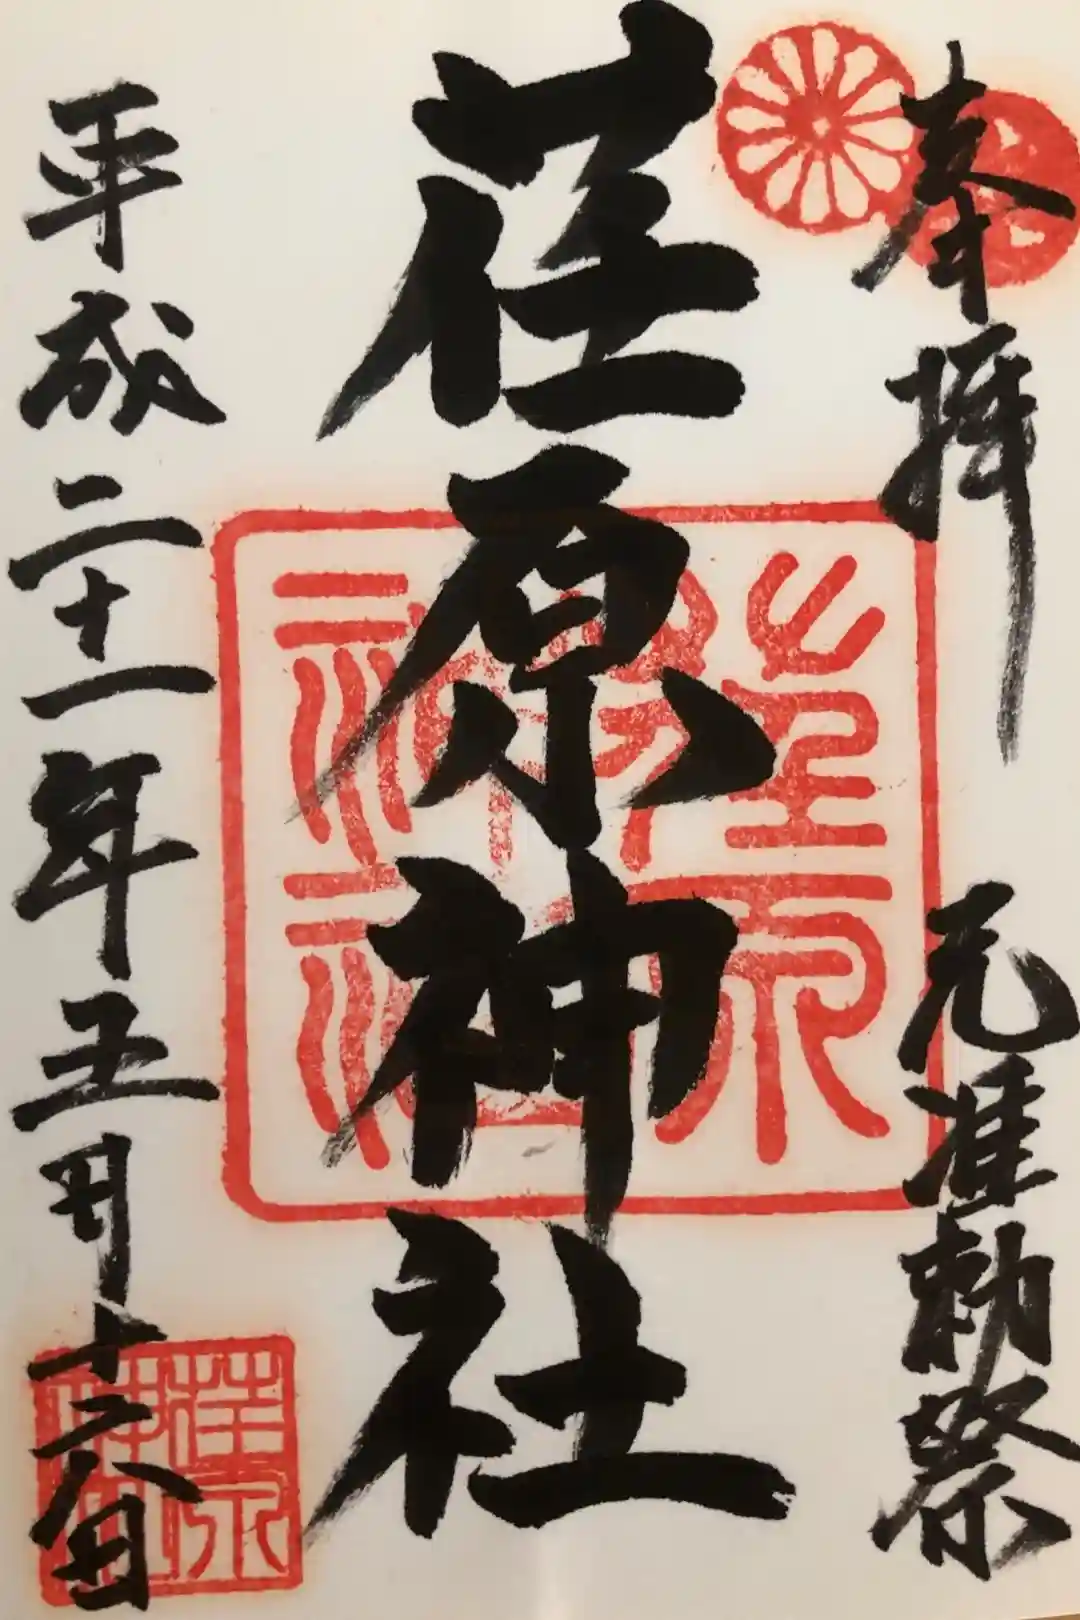 奉拝 元准勅祭
荏原神社
平成二十一年五月十六日
荏原
神社